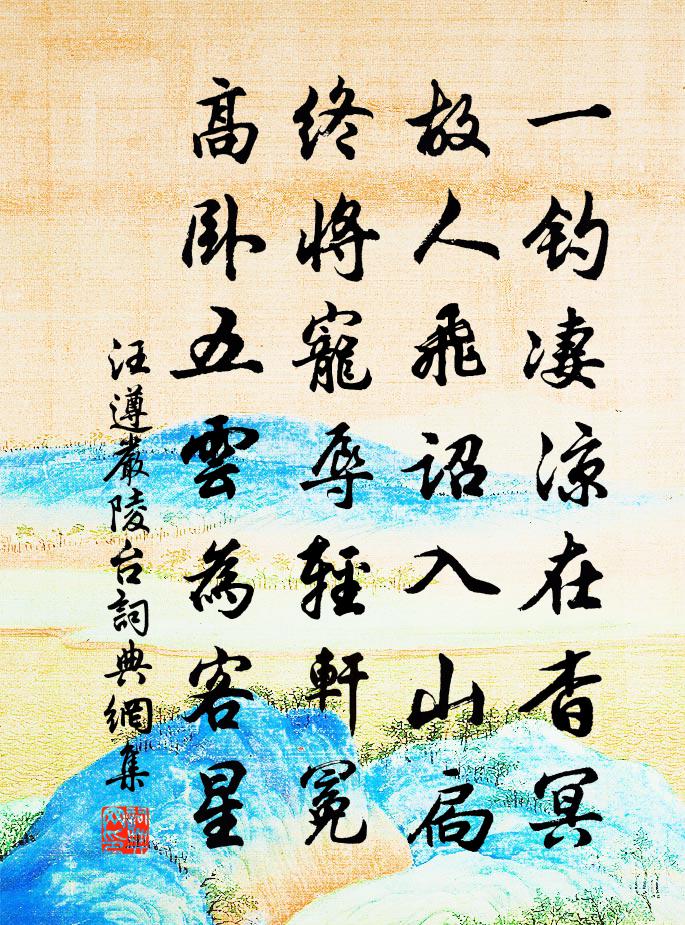 一釣淒涼在杳冥
故人飛詔入山扃
終將寵辱輕軒冕
高臥五雲為客星
汪遵嚴陵台詞典網集